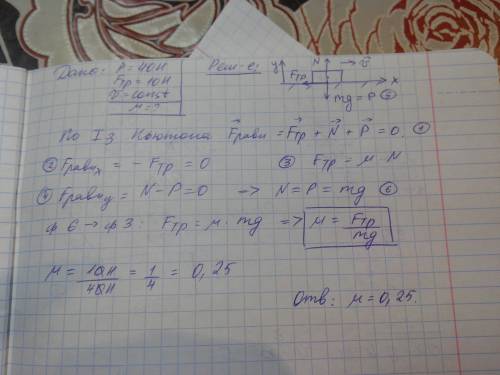 Дано: P = 40Н
Fтр = 10Н
v = const
μ = ?
Реш-е:
y N v
Fтр x
mg = P ⑤
По I з Ньютона F равн = Fтр + N + P = 0 ①
② Fравнx = - Fтр = 0 ③ Fтр = μ · N
④ Fравнy = N - P = 0 -> N = P = mg ⑥
ф 6 → ф 3: Fтр = μ · mg => μ = Fтр / mg
μ = 10Н / 40Н = 1/4 = 0,25
Отв: μ = 0,25.